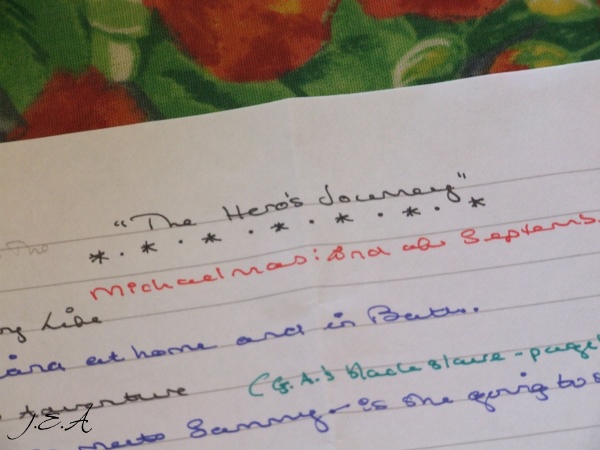 "The Hero's Journey"
* . * . * . * . * . * . *
Michaelmas: End of Septemb
ng Live
iana at home and in Bath.
Adventure (G.A.) black slave - page
meets Sammy - is she going to s
J.E.A